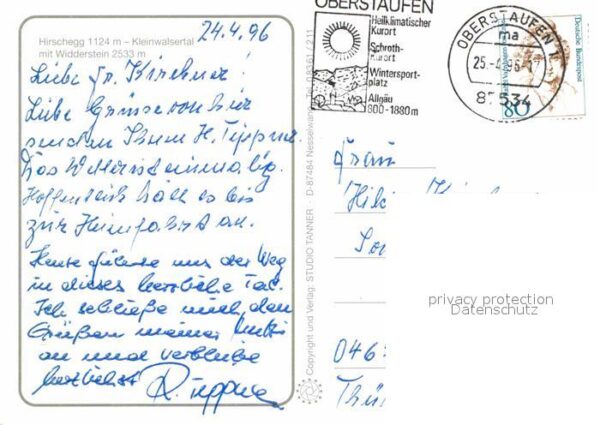 Hirschegg 1124 m – Kleinwalsertal
mit Widderstein 2533 m
24.4.96
Liebe Fr. Kirchner!
Liebe Grüsse von hier
senden Ihnen H. Tippner
Das Wetter ist einmalig.
Hoffentlich hält es bis
zur Heimfahrt an.
Heute führte uns der Weg
in dieses herrliche Tal.
Ich schließe mich den
Grüßen meiner Mutti
an und verbleibe
herzlichst R. Tippner
Copyright und Verlag: STUDIO TANNER · D-87484 Nesselwang
OBERSTAUFEN
Heilklimatischer
Kurort
Schroth-
Kurort
Wintersport-
platz
Allgäu
800-1880m
OBERSTAUFEN
ma
87534
Deutsche Bundespost
80
Frau
privacy protection
Datenschutz
046
Thü